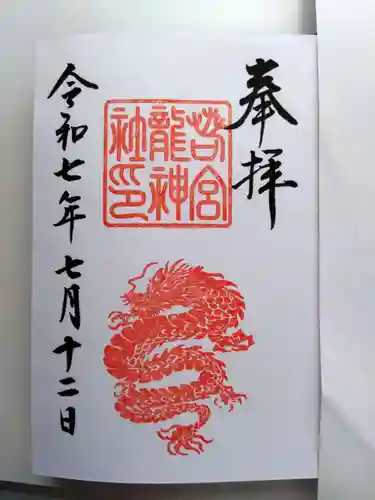 奉拝
若宮
龍神
社印
令和七年七月十二日